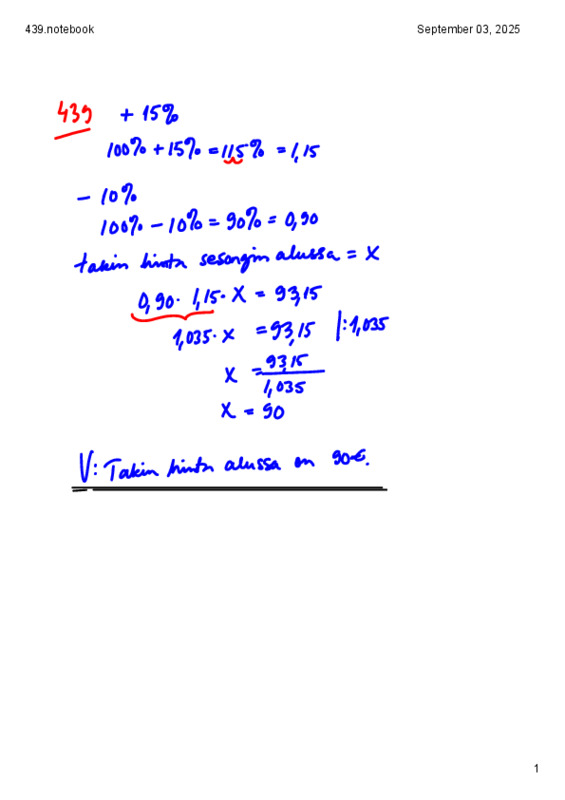 439.notebook
September 03, 2025
439 + 15%
100% + 15% = 115% = 1,15
- 10%
100% - 10% = 90% = 0,90
takin hinta sesongin alussa = x
0,90 · 1,15 · x = 93,15
1,035 · x = 93,15 |:1,035
x = 93,15
1,035
x = 90
V: Takin hinta alussa on 90€.
1